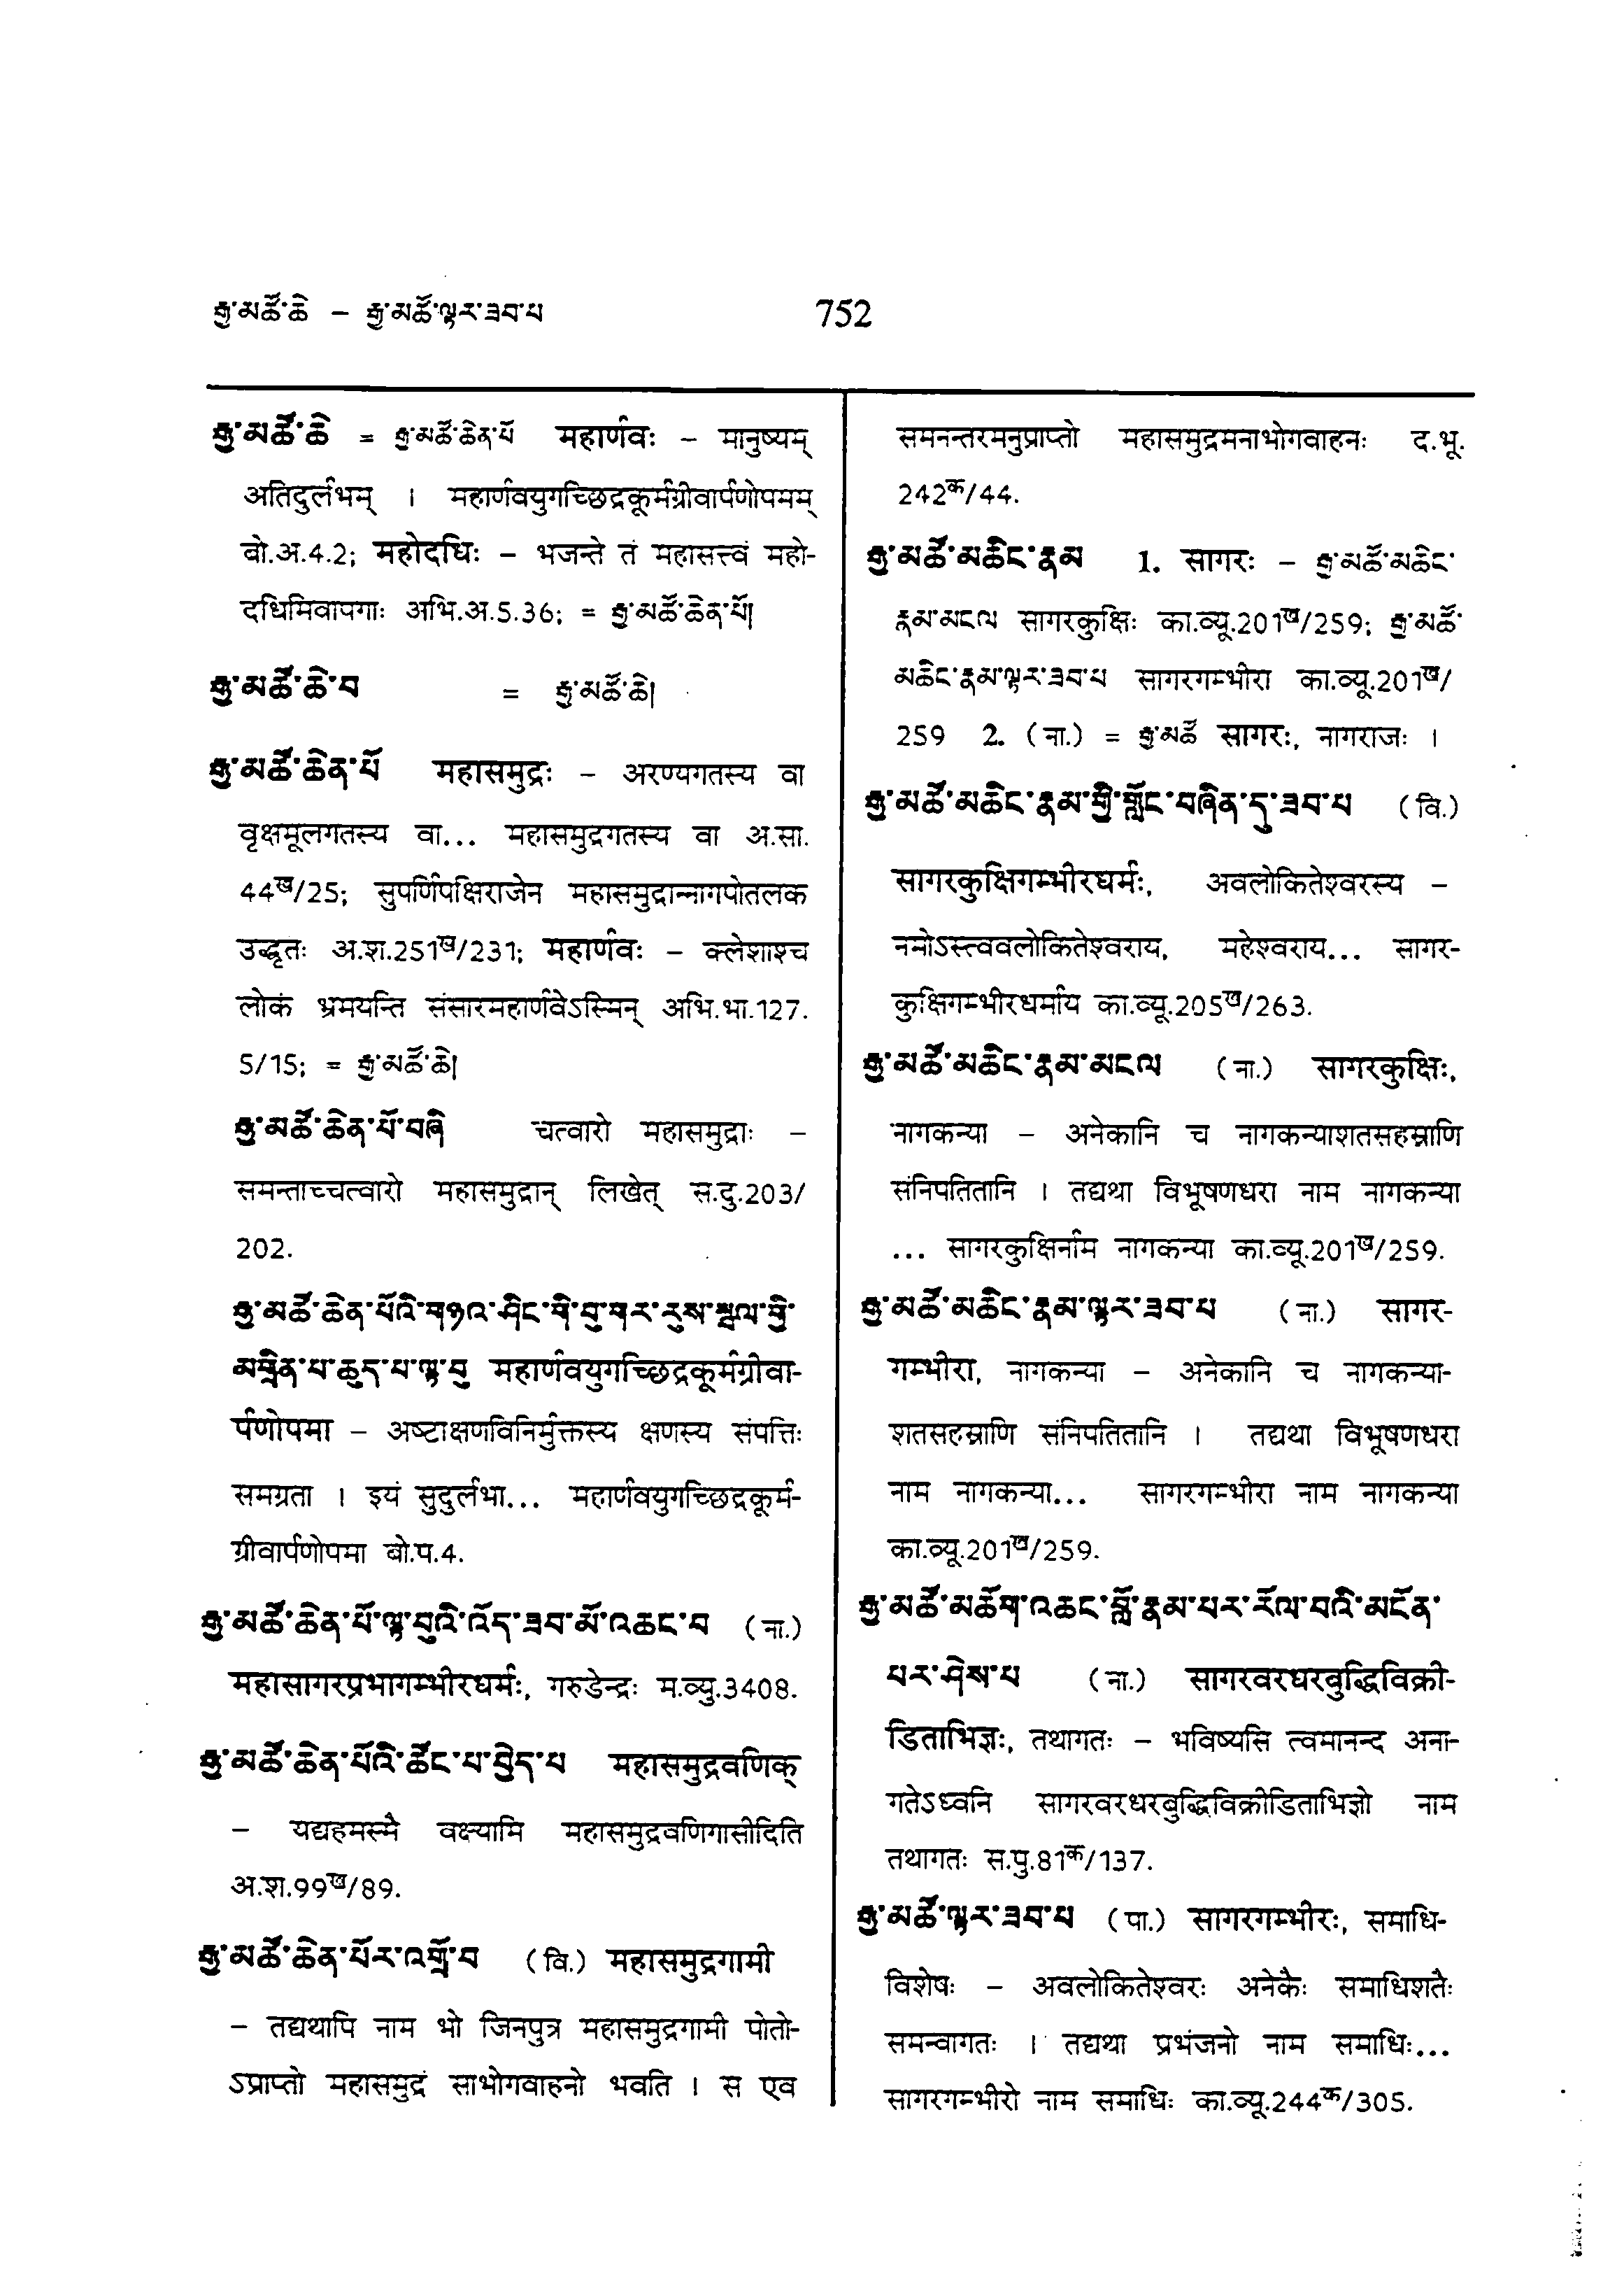 རྒྱ་མཚོ་ཆེ – རྒྱ་མཚོ་ལྟར་ཟབ་པ
752
རྒྱ་མཚོ་ཆེ = རྒྱ་མཚོ་ཆེན་པོ महार्णवः – मानुष्यम्
अतिदुर्लभम् । महार्णवयुगच्छिद्रकूर्मग्रीवार्पणोपमम्
बो.अ.4.2; महोदधिः – भजन्ते तं महासत्त्वं महो-
दधिमिवापगाः अभि.अ.5.36; = རྒྱ་མཚོ་ཆེན་པོ།
རྒྱ་མཚོ་ཆེ་བ = རྒྱ་མཚོ་ཆེ།
རྒྱ་མཚོ་ཆེན་པོ महासमुद्रः – अरण्यगतस्य वा
वृक्षमूलगतस्य वा... महासमुद्रगतस्य वा अ.सा.
44ख/25; सुपर्णिपक्षिराजेन महासमुद्रान्नागपोतलक
उद्धृतः अ.श.251ख/231; महार्णवः – क्लेशाश्च
लोकं भ्रमयन्ति संसारमहार्णवेऽस्मिन् अभि.भा.127.
5/15; = རྒྱ་མཚོ་ཆེ།
རྒྱ་མཚོ་ཆེན་པོ་བཞི चत्वारो महासमुद्राः –
समन्ताच्चत्वारो महासमुद्रान् लिखेत् स.दु.203/
202.
རྒྱ་མཚོ་ཆེན་པོའི་གཉའ་ཤིང་གི་བུ་གར་རུས་སྦལ་གྱི་
མགྲིན་པ་ཆུད་པ་ལྟ་བུ महार्णवयुगच्छिद्रकूर्मग्रीवा-
र्पणोपमा – अष्टाक्षणविनिर्मुक्तस्य क्षणस्य संपत्तिः
समग्रता । इयं सुदुर्लभा... महार्णवयुगच्छिद्रकूर्म-
ग्रीवार्पणोपमा बो.प.4.
རྒྱ་མཚོ་ཆེན་པོ་ལྟ་བུའི་འོད་ཟབ་མོ་འཆང་བ (ना.)
महासागरप्रभागम्भीरधर्मः, गरुडेन्द्रः म.व्यु.3408.
རྒྱ་མཚོ་ཆེན་པོའི་ཚོང་པ་བྱེད་པ महासमुद्रवणिक्
– यद्यहमस्मै वक्ष्यामि महासमुद्रवणिगासीदिति
अ.श.99ख/89.
རྒྱ་མཚོ་ཆེན་པོར་འགྲོ་བ (वि.) महासमुद्रगामी
– तद्यथापि नाम भो जिनपुत्र महासमुद्रगामी पोतो-
ऽप्राप्तो महासमुद्रं साभोगवाहनो भवति । स एव
समनन्तरमनुप्राप्तो महासमुद्रमनाभोगवाहनः द.भू.
242क/44.
རྒྱ་མཚོ་མཆིང་རྣམ 1. सागरः – རྒྱ་མཚོ་མཆིང་
རྣམ་མངལ सागरकुक्षिः का.व्यू.201ख/259; རྒྱ་མཚོ་
མཆིང་རྣམ་ལྟར་ཟབ་པ सागरगम्भीरा का.व्यू.201ख/
259 2. (ना.) = རྒྱ་མཚོ सागरः, नागराजः ।
རྒྱ་མཚོ་མཆིང་རྣམ་གྱི་ཀློང་བཞིན་དུ་ཟབ་པ (वि.)
सागरकुक्षिगम्भीरधर्मः, अवलोकितेश्वरस्य –
नमोऽस्त्ववलोकितेश्वराय, महेश्वराय... सागर-
कुक्षिगम्भीरधर्माय का.व्यू.205ख/263.
རྒྱ་མཚོ་མཆིང་རྣམ་མངལ (ना.) सागरकुक्षिः,
नागकन्या – अनेकानि च नागकन्याशतसहस्राणि
संनिपतितानि । तद्यथा विभूषणधरा नाम नागकन्या
... सागरकुक्षिर्नाम नागकन्या का.व्यू.201ख/259.
རྒྱ་མཚོ་མཆིང་རྣམ་ལྟར་ཟབ་པ (ना.) सागर-
गम्भीरा, नागकन्या – अनेकानि च नागकन्या-
शतसहस्राणि संनिपतितानि । तद्यथा विभूषणधरा
नाम नागकन्या... सागरगम्भीरा नाम नागकन्या
का.व्यू.201ख/259.
རྒྱ་མཚོ་མཆོག་འཆང་བློ་རྣམ་པར་རོལ་བའི་མངོན་
པར་ཤེས་པ (ना.) सागरवरधरबुद्धिविक्री-
डिताभिज्ञः, तथागतः – भविष्यसि त्वमानन्द अना-
गतेऽध्वनि सागरवरधरबुद्धिविक्रीडिताभिज्ञो नाम
तथागतः स.पु.81क/137.
རྒྱ་མཚོ་ལྟར་ཟབ་པ (पा.) सागरगम्भीरः, समाधि-
विशेषः – अवलोकितेश्वरः अनेकैः समाधिशतैः
समन्वागतः । तद्यथा प्रभंजनो नाम समाधिः...
सागरगम्भीरो नाम समाधिः का.व्यू.244क/305.